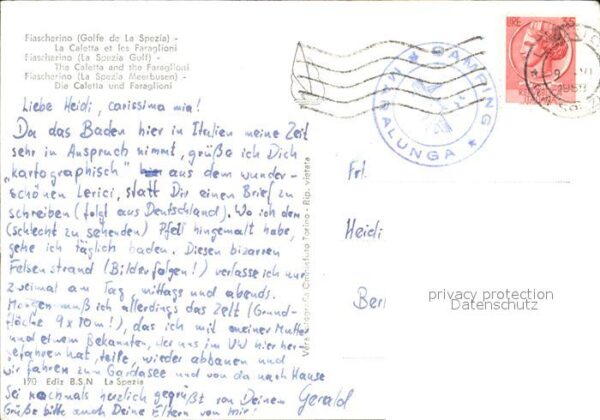 Fiascherino (Golfe de La Spezia) -
La Caletta et les Faraglioni
Fiascherino (La Spezia Gulf) -
The Caletta and the Faraglioni
Fiascherino (La Spezia Meerbusen) -
Die Caletta und Faraglioni
Liebe Heidi, carissima mia!
Da das Baden hier in Italien meine Zeit
sehr in Anspruch nimmt, grüße ich Dich
„kartographisch" aus dem wunder-
schönen Lerici, statt Dir einen Brief zu
schreiben (folgt aus Deutschland). Wo ich den
(schlecht zu sehenden) Pfeil hingemalt habe,
gehe ich täglich baden. Diesen bizarren
Felsenstrand (Bilder folgen!) verlasse ich nur
zweimal am Tag mittags und abends.
Morgen muß ich allerdings das Zelt (Grund-
fläche 9x10m!), das ich mit meiner Mutter
und einem Bekannten, der uns im VW hier her
gefahren hat, teile, wieder abbauen und
wir fahren zum Gardasee und von da nach Hause
170 Ediz B.S.N La Spezia
Sei nochmals herzlich gegrüßt von Deinem Gerald
Grüße bitte auch Deine Eltern von mir!
Rip. vietata
LIRE 35
CAMPING
MARALUNGA
1958
Frl.
Heidi
Berl
privacy protection
Datenschutz